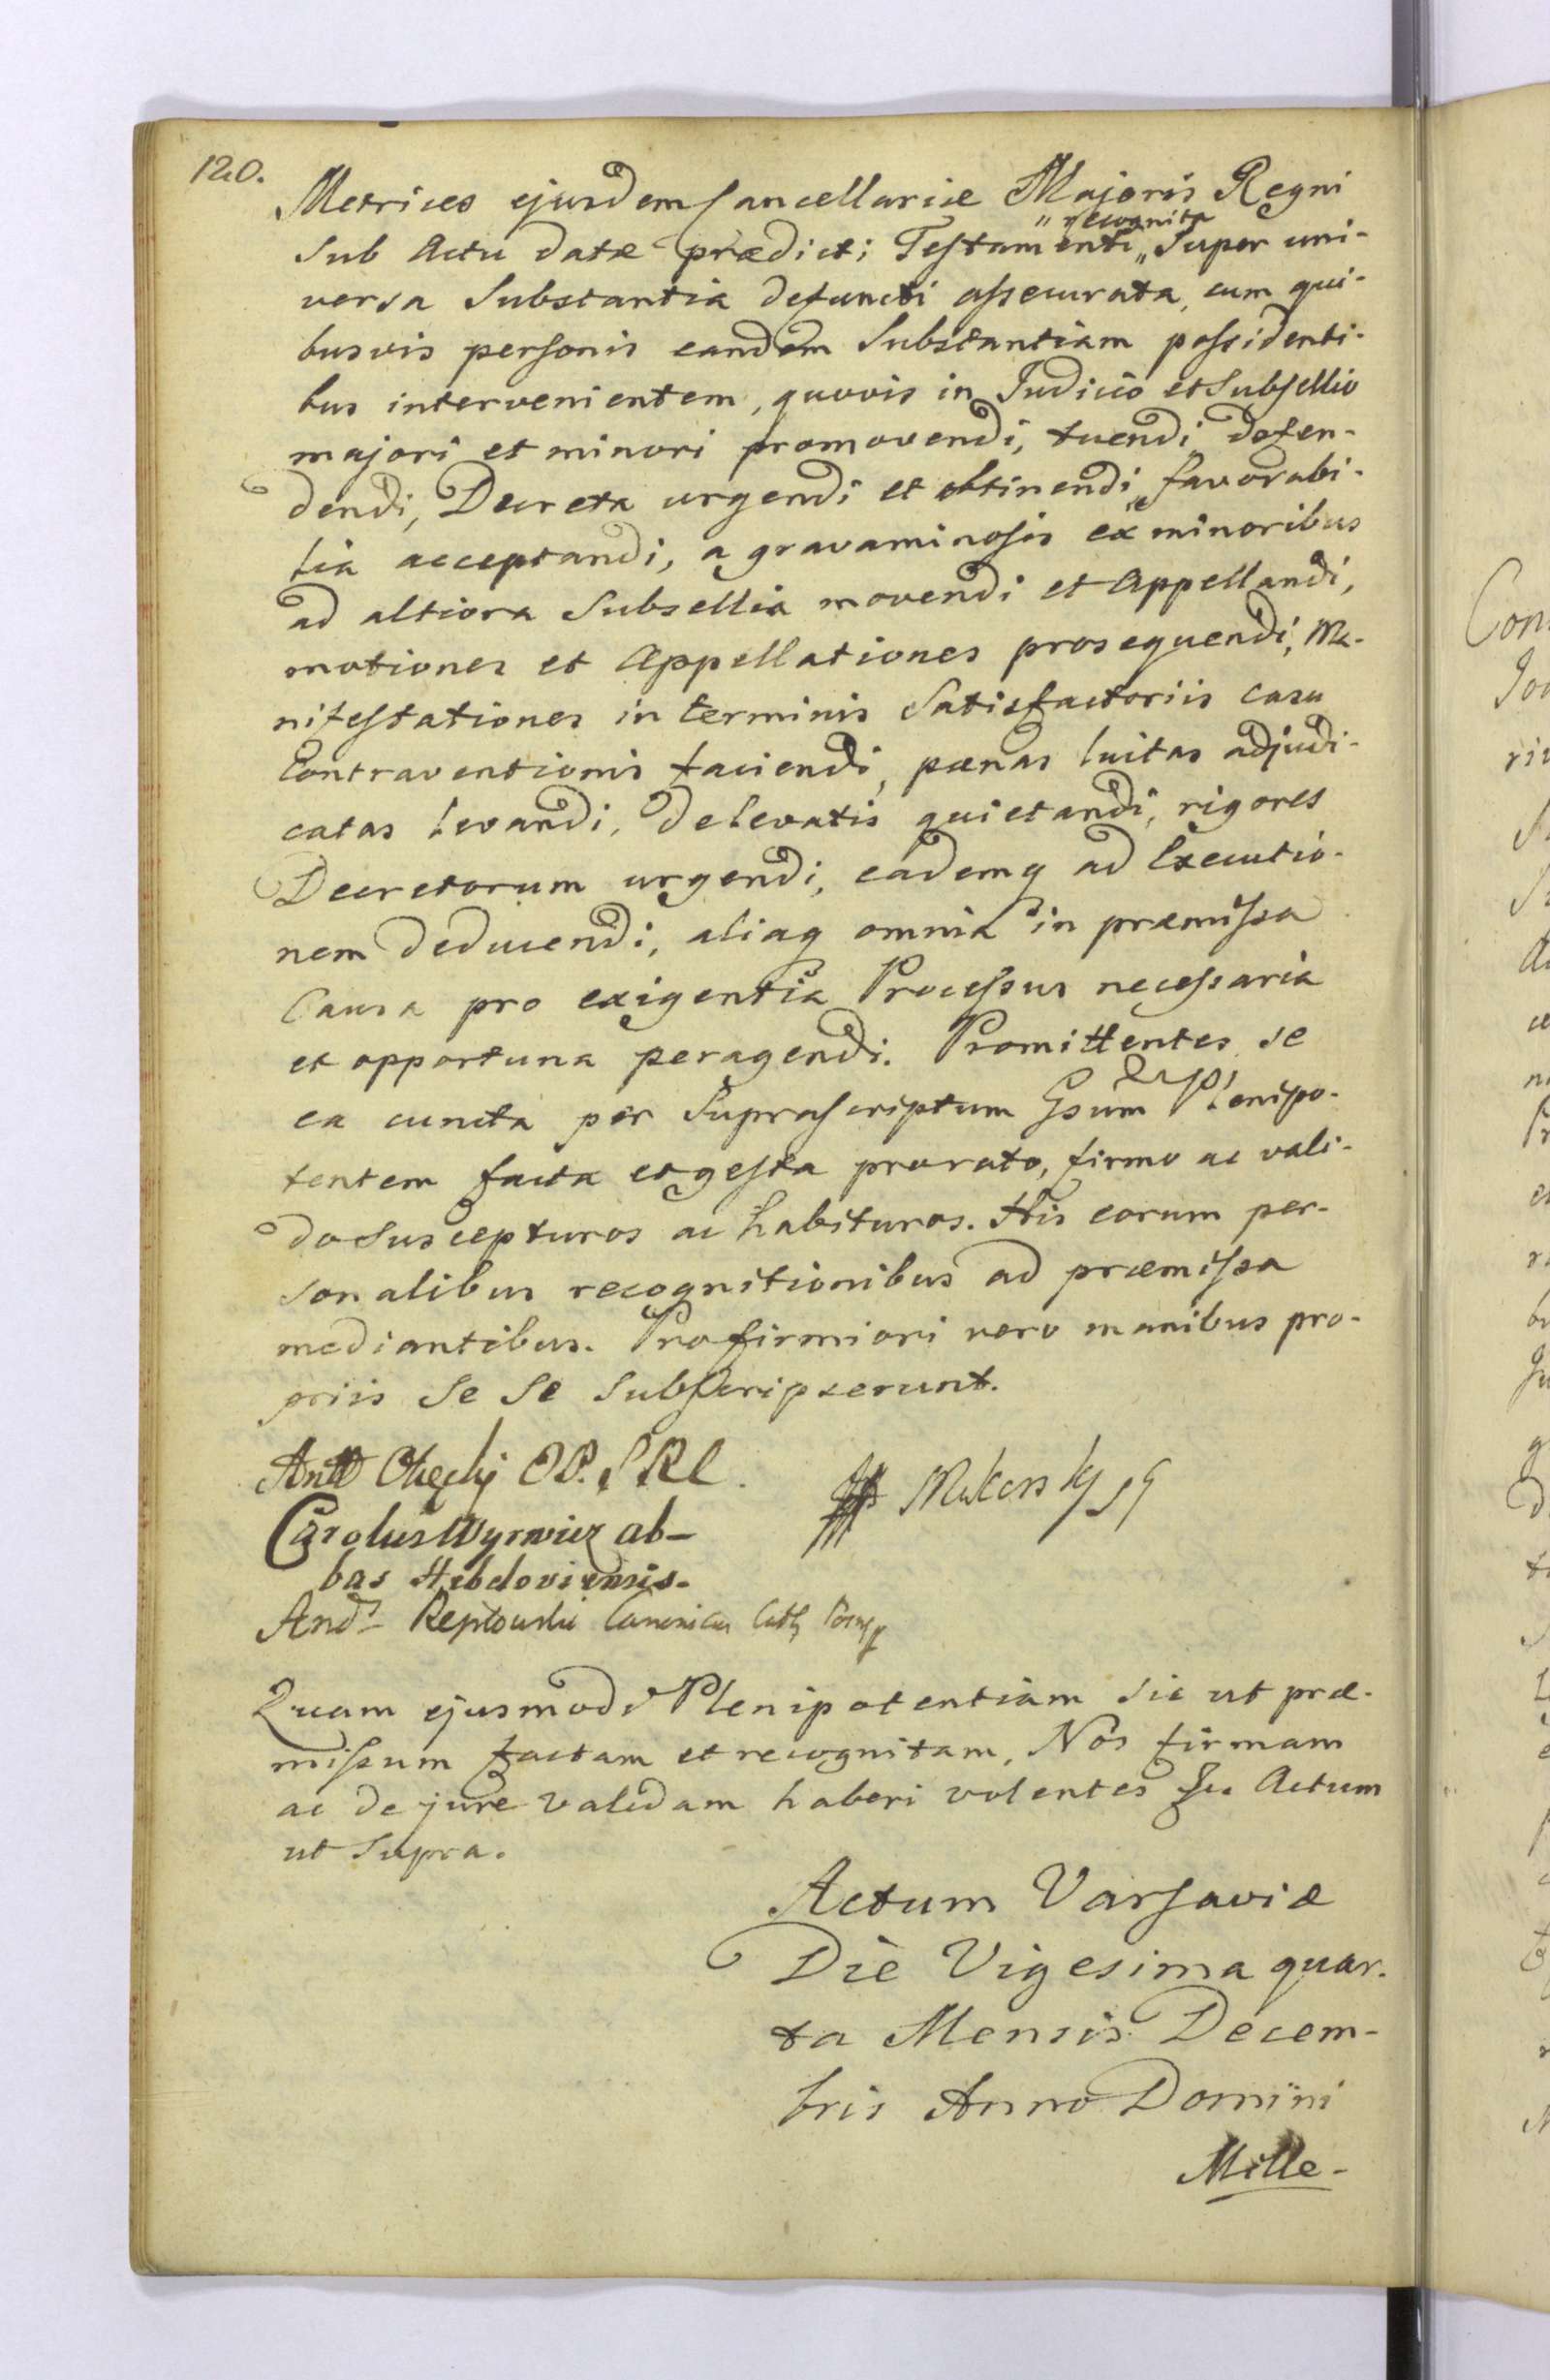 120.
Metrices ejusdem Cancellariæ Majoris Regni
" recognita
Sub Actu datæ prædicti Testamenti " Super uni-
versa Substantia defuncti assecurata, cum qui-
busvis personis eandem Substantiam possidenti-
bus intervenientem, quovis in Judicio et Subsellio
majori et minori promovendi, tuendi, defen-
dendi, Decreta urgendi et obtinendi, favorabi-
lia acceptandi, a gravaminosis ex minoribus
ad altiora Subsellia movendi et Appellandi,
motiones et Appellationes prosequendi, Ma-
nifestationes in terminis Satisfactoriis casu
Contraventionis faciendi, pænas luitas adjudi-
catas levandi, de levatis quietandi, rigores
Decretorum urgendi, eademq ad Executio-
nem deducendi, aliaq omnia in præmissa
Causa pro exigentia Processus necessaria
et opportuna peragendi. Promittentes se
ea cuncta per Suprascriptum Gsum Plenipo-
tentem facta et gesta pro rato, firmo ac vali-
do Suscepturos ac habituros. His eorum per-
sonalibus recognitionibus ad præmissa
mediantibus. Pro firmiori vero manibus pro-
priis Se Se Subscripserunt.
Antt
Mikorsky
Carolus Wyrwicz ab-
bas Hebdoviensis.
And. Reptowski Canonicus Cath
Quam ejusmodi Plenipotentiam sic ut præ-
missum factam et recognitam, Nos firmam
ac de jure validam haberi volentes &c. Actum
ut Supra.
Actum Varsaviæ
Die Vigesima quar-
ta Mensis Decem-
bris Anno Domini
Mille-